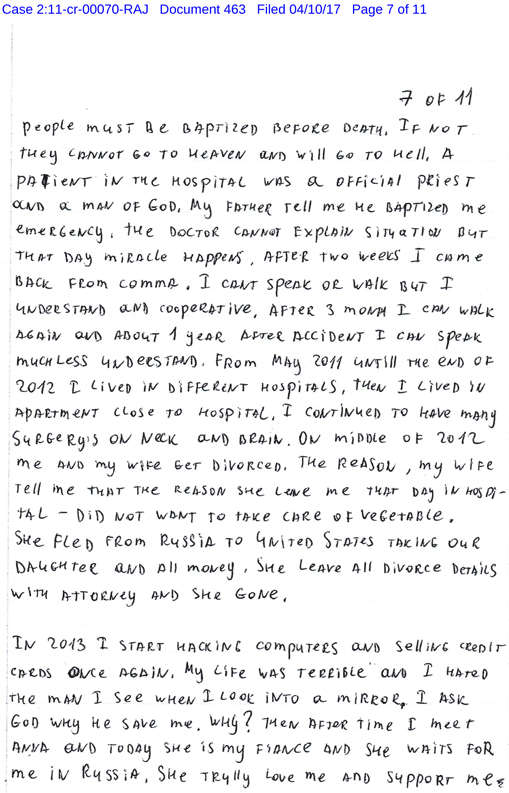 Case 2:11-cr-00070-RAJ Document 463 Filed 04/10/17 Page 7 of 11
7 OF 11
people must Be BAPTIZED BEFORE DEATH. IF NOT
they CANNOT GO TO HEAVEN AND will GO TO Hell. A
PATIENT IN THE HOSPITAL WAS a OFFICIAL PRIEST
AND a MAN OF GOD. My FATHER Tell me He BAPTIZED me
emeRGENCY. THE DOCTOR CANNOT EXPLAIN SITUATION BUT
THAT DAY miRACLE HAPPENS, AFTER TWO WEEKS I CAME
BACK FROM COMMA. I CANT SPEAK OR WALK BUT I
UNDERSTAND AND COOPERATIVE, AFTER 3 MONTH I CAN WALK
AGAIN AND ABOUT 1 yEAR AFTER ACCIDENT I CAN SPEAK
much LESS UNDERSTAND. FROM MAY 2011 UNTILL THE END OF
2012 I LIVED IN DIFFERENT HOSPITALS, THEN I LIVED IN
APARTMENT CLOSE TO HOSPITAL. I CONTINUED TO HAVE MANY
SURGERY'S ON NECK AND BRAIN. ON MIDDLE OF 2012
me AND my WIFE GET DIVORCED. THE REASON, my WIFE
Tell me THAT THE REASON SHE LEAVE me THAT DAY IN HOSPI-
TAL - DID NOT WANT TO TAKE CARE OF VEGETABLE.
SHE FLED FROM RUSSIA TO UNITED STATES TAKING OUR
DAUGHTER AND All money. SHE LEAVE All DIVORCE DETAILS
WITH ATTORNEY AND SHE GONE.
IN 2013 I START HACKING COMPUTERS AND SELLING CREDIT
CARDS ONCE AGAIN. My LIFE WAS TERRIBLE AND I HATED
THE MAN I SEE WHEN I LOOK INTO a MIRROR. I ASK
GOD WHY HE SAVE me. WHY? THEN AFTER TIME I MEET
ANNA AND TODAY SHE IS MY FIANCE AND SHE WAITS FOR
me IN RUSSIA. SHE TRULLY LOVE me AND SUPPORT me.